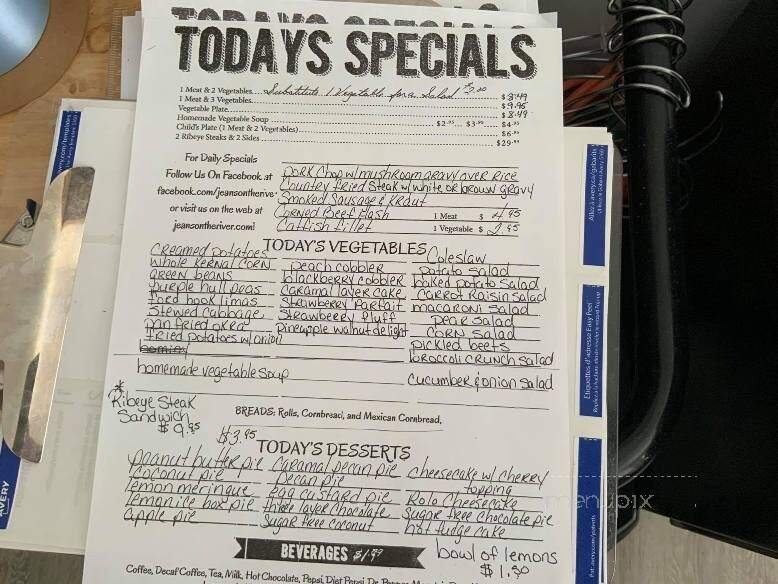 TODAYS SPECIALS
1 Meat & 2 Vegetables....Substitute 1 Vegetable for a Salad $2.00 $ 8.49
1 Meat & 3 Vegetables $ 9.95
Vegetable Plate $ 8.49
Homemade Vegetable Soup $2.95 $3.95 $4.95
Child's Plate (1 Meat & 2 Vegetables) $6.
2 Ribeye Steaks & 2 Sides $29.
For Daily Specials
Follow Us On Facebook at
facebook.com/jeansontherive
or visit us on the web at
jeansontheriver.com!
Pork Chop w/mushroom gravy over Rice
Country fried Steak w/ white or brown gravy
Smoked Sausage & Kraut
Corned Beef Hash 1 Meat $ 4.95
Catfish fillet 1 Vegetable $ 2.95
TODAY'S VEGETABLES
Creamed potatoes
whole Kernal Corn
green beans
purple hull peas
Ford hook limas
Stewed cabbage
pan fried okra
fried potatoes w/onion
peach cobbler
blackberry cobbler
Caramal layer cake
Strawberry Parfait
Strawberry fluff
Pineapple walnut delight
Coleslaw
potato salad
baked potato Salad
Carrot Raisin Salad
macaroni Salad
pear Salad
Corn Salad
pickled beets
broccoli crunch salad
homemade vegetable soup
cucumber & onion salad
*
Ribeye Steak
Sandwich
$ 9.95
BREADS: Rolls, Cornbread, and Mexican Cornbread,
$3.95
TODAY'S DESSERTS
Peanut butter pie
Coconut pie
lemon meringue
lemon ice box pie
apple pie
Caramal pecan pie
Pecan pie
egg custard pie
three layer chocolate
Sugar free coconut
cheesecake w/ cherry
topping
Rolo Cheesecake
Sugar free chocolate pie
hot fudge cake
BEVERAGES $1.99
bowl of lemons
$ 1.50
Coffee, Decaf Coffee, Tea, Milk, Hot Chocolate, Pepsi, Diet Pepsi, Dr. Pepper
menubix
AVERY
Étiquettes d'adresse Easy Peel